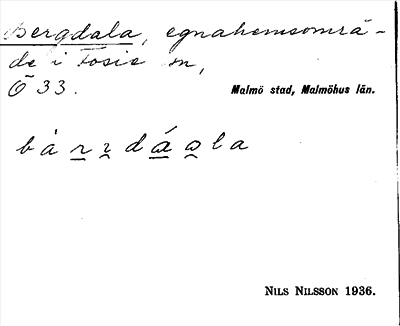 Bergdala, egnahemsområ-
de i Fosie sn,
Ö 33.
Malmö stad, Malmöhus län.
NILS NILSSON 1936.